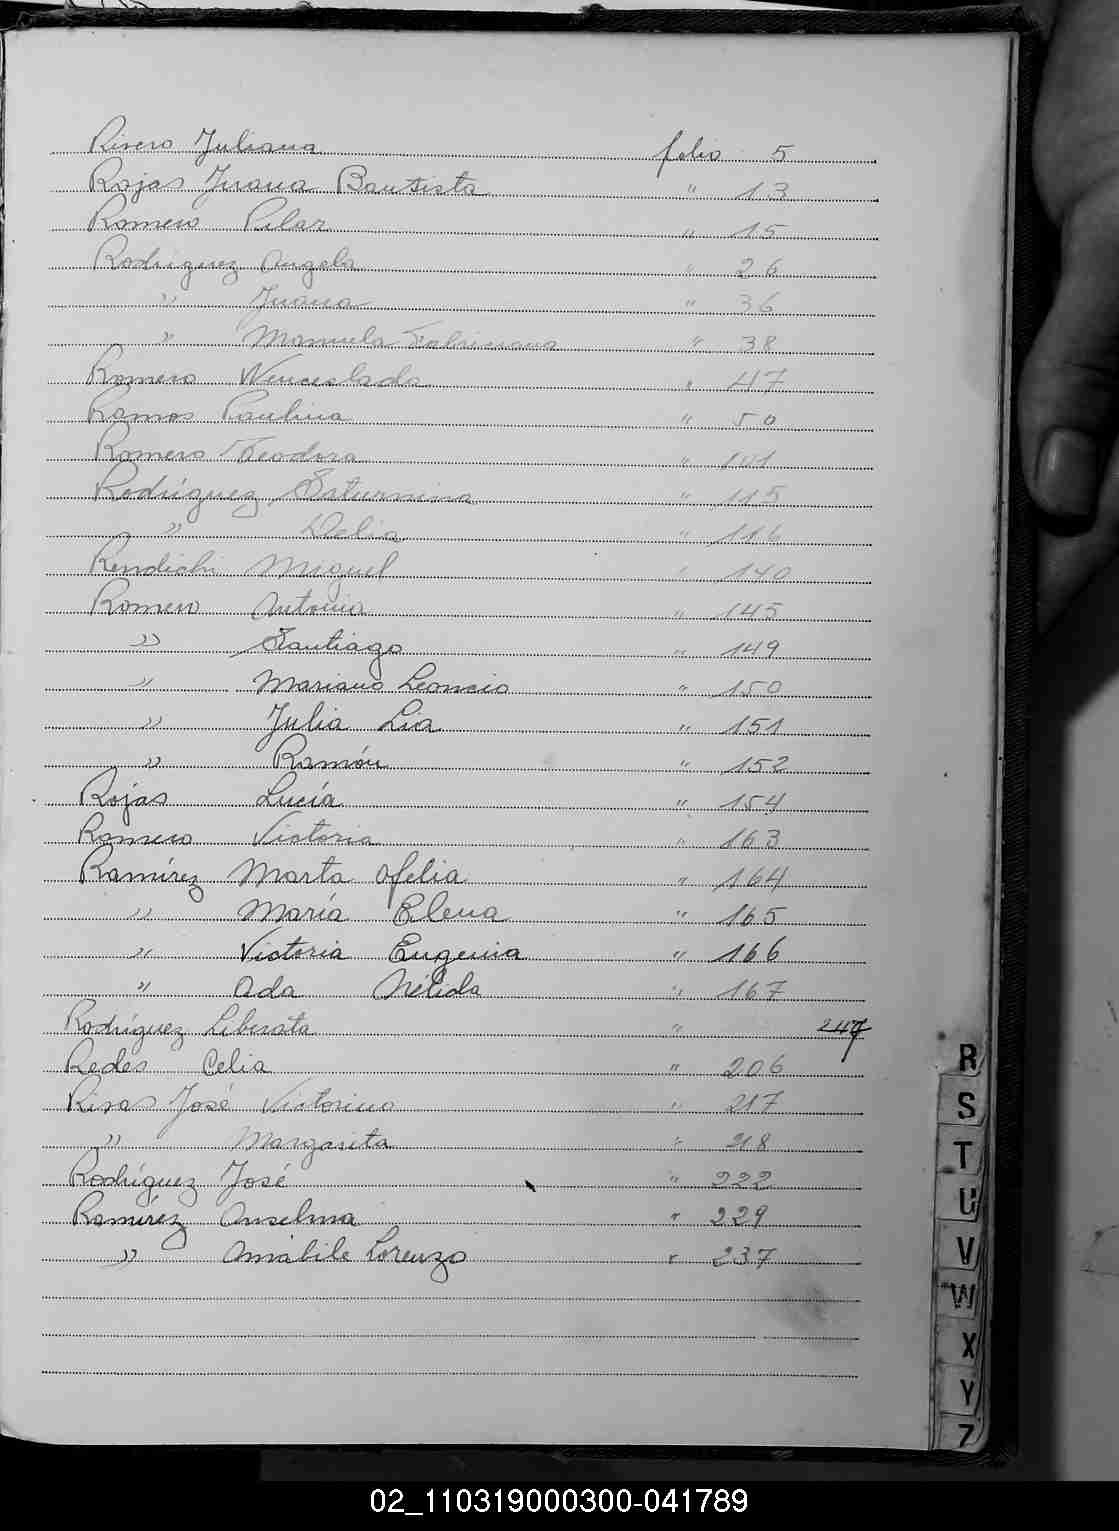 Rivero Juliana folio 5
Rojas Juana Bautista " 13
Romero Pilar " 15
Rodriguez Angela " 26
" Juana " 36
" Manuela Fabriciana " 38
Romero Wenceslada " 47
Ramos Paulina " 50
Romero Teodora " 101
Rodríguez Saturnina " 115
" Delia " 116
Rendichi Miguel " 140
Romero Antonio " 145
" Santiago " 149
" Mariano Leoncio " 150
" Julia Lia " 151
" Ramón " 152
Rojas Lucía " 154
Romero Victoria " 163
Ramírez Marta Ofelia " 164
" María Elena " 165
" Victoria Eugenia " 166
" Ada Nélida " 167
Rodríguez Liberata " 247
Redes Celia " 206
Rivas José Victorino " 217
" Margarita " 218
Rodríguez José " 222
Ramírez Anselma " 229
" Amábile Lorenzo " 237
R
S
T
U
V
W
X
Y
Z
02_110319000300-041789